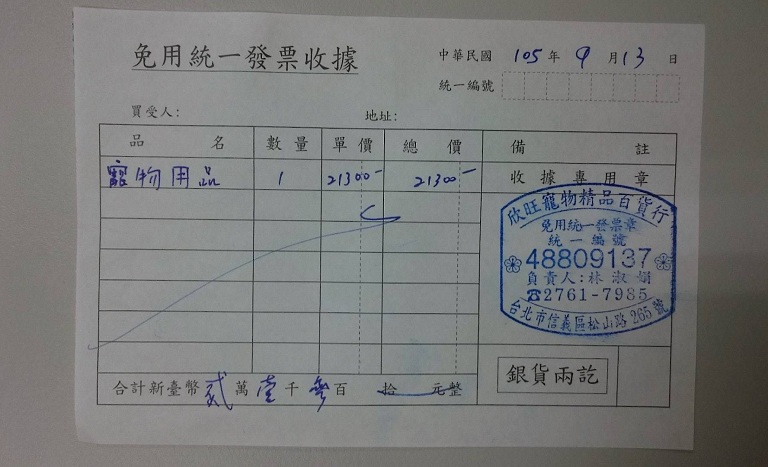 免用統一發票收據
中華民國 105 年 9 月 13 日
統一編號
買受人: 地址:
品名 數量 單價 總價 備註
寵物用品 1 21300- 21300- 收據專用章
欣旺寵物精品百貨行
免用統一發票章
統一編號
48809137
負責人:林淑娟
☎2761-7985
台北市信義區松山路265號
合計新臺幣貳萬壹千參百拾元整
銀貨兩訖